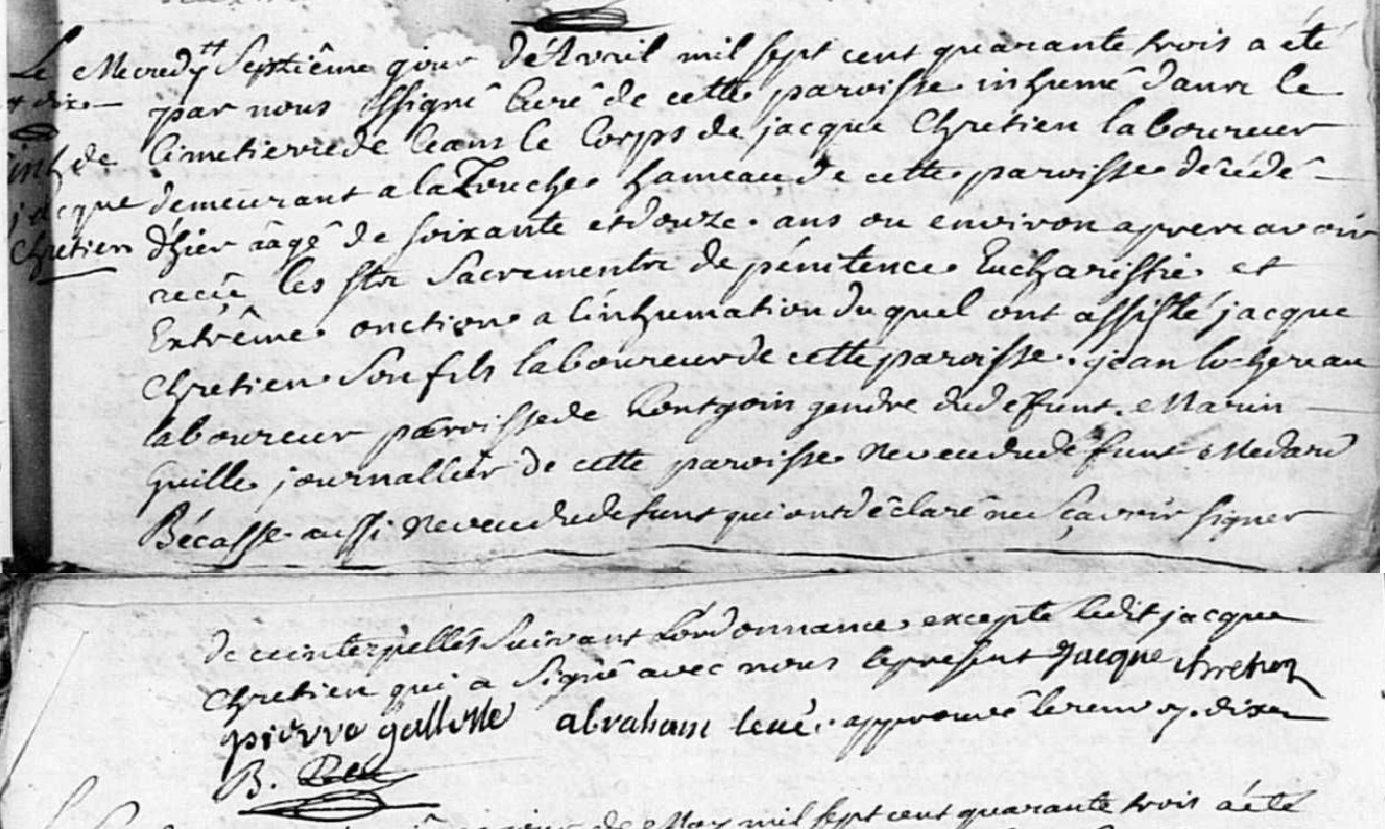 Le Mecredy # Septiême jour d'Avril mil sept cent quarante trois a êté
# dix
par nous ssigné Curé de cette paroisse inhumé dans le
inh de
Cimetierre de ceans le Corps de jacque Chretien laboureur
jacque
demeurant a la Touche hameau de cette paroisse décédé
Chretien
d'hier âagé de soixante et douze ans ou environ apprers avoir
reçü les sts Sacrements de pénitence Eucharistie et
Extrême onction a l'inhumation du quel ont assisté jacque
Chretien Son fils laboureur de cette paroisse jean lochereau
laboureur paroisse de Pontgoin gendre du defunt Marin
Guille journallier de cette paroisse Neveu du défunt Medard
Bécasse aussi Neveu du defunt qui ont déclaré ne Sçavoir signer
de ce interpellés Suivant L'ordonnance excepté ledit jacque
Chretien qui a Signé avec nous le present Jacque chretien
pierre gallotte abraham leué approuvé le renvoy dix
B.
jour de May mil sept cent quarante trois a été